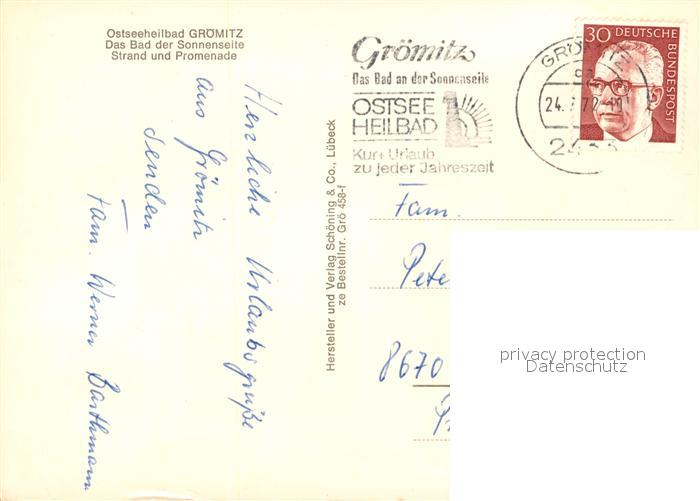 Ostseeheilbad GRÖMITZ
Das Bad der Sonnenseite
Strand und Promenade
Herzliche Urlaubsgrüße
aus Grömitz
senden
Fam. Werner Barthmann
Hersteller und Verlag Schöning & Co., Lübeck
ze Bestellnr. Grö 458-f
Grömitz
Das Bad an der Sonnenseite
OSTSEE
HEILBAD
Kur + Urlaub
zu jeder Jahreszeit
GRÖMITZ
24.
72
30 DEUTSCHE
BUNDESPOST
Fam.
Pete
8670
privacy protection
Datenschutz